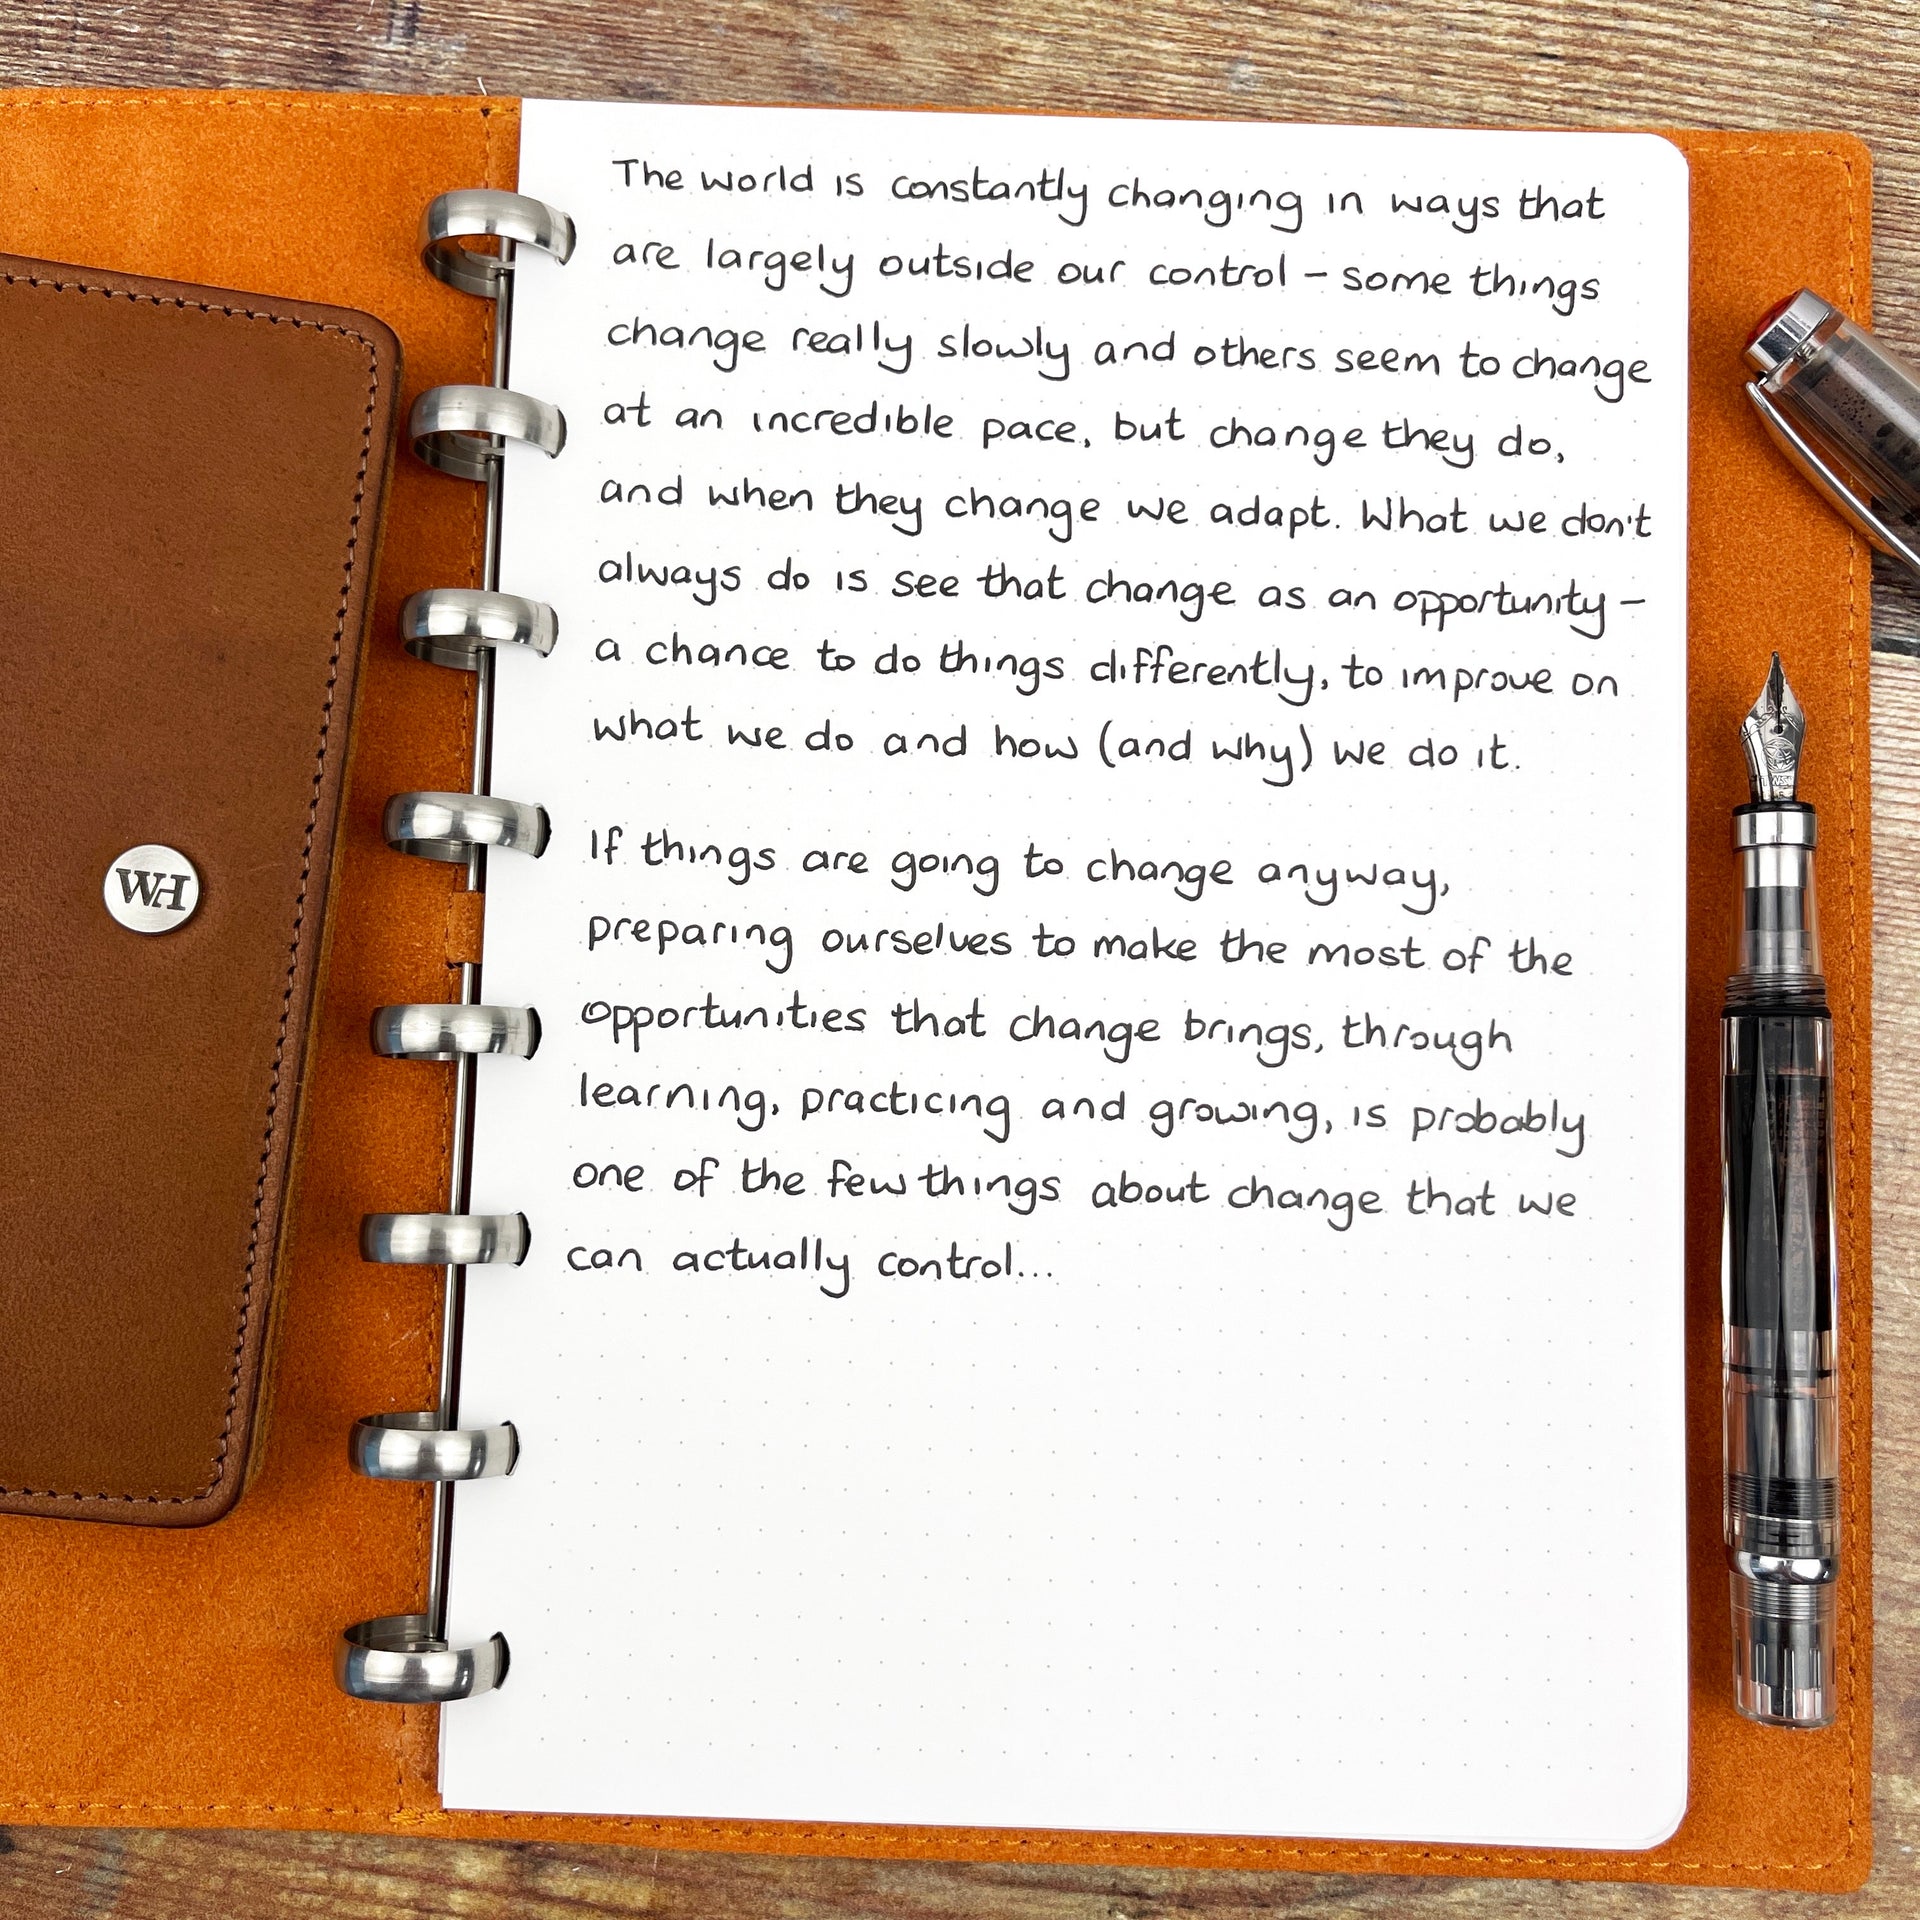 The world is constantly changing in ways that
are largely outside our control – some things
change really slowly and others seem to change
at an incredible pace, but change they do,
and when they change we adapt. What we don't
always do is see that change as an opportunity –
a chance to do things differently, to improve on
what we do and how (and why) we do it.
If things are going to change anyway,
preparing ourselves to make the most of the
opportunities that change brings, through
learning, practicing and growing, is probably
one of the few things about change that we
can actually control...
WH